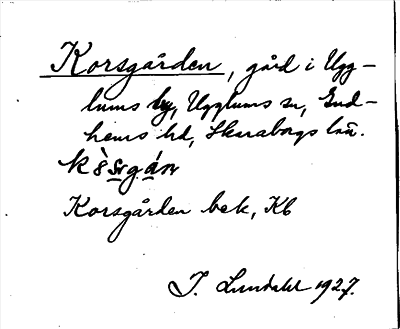 Korsgården, gård i Ugg-
lums by, Ugglums sn, Gud-
hems hd, Skaraborgs län.
Korsgården bek, Kb
I. Lundahl 1927.